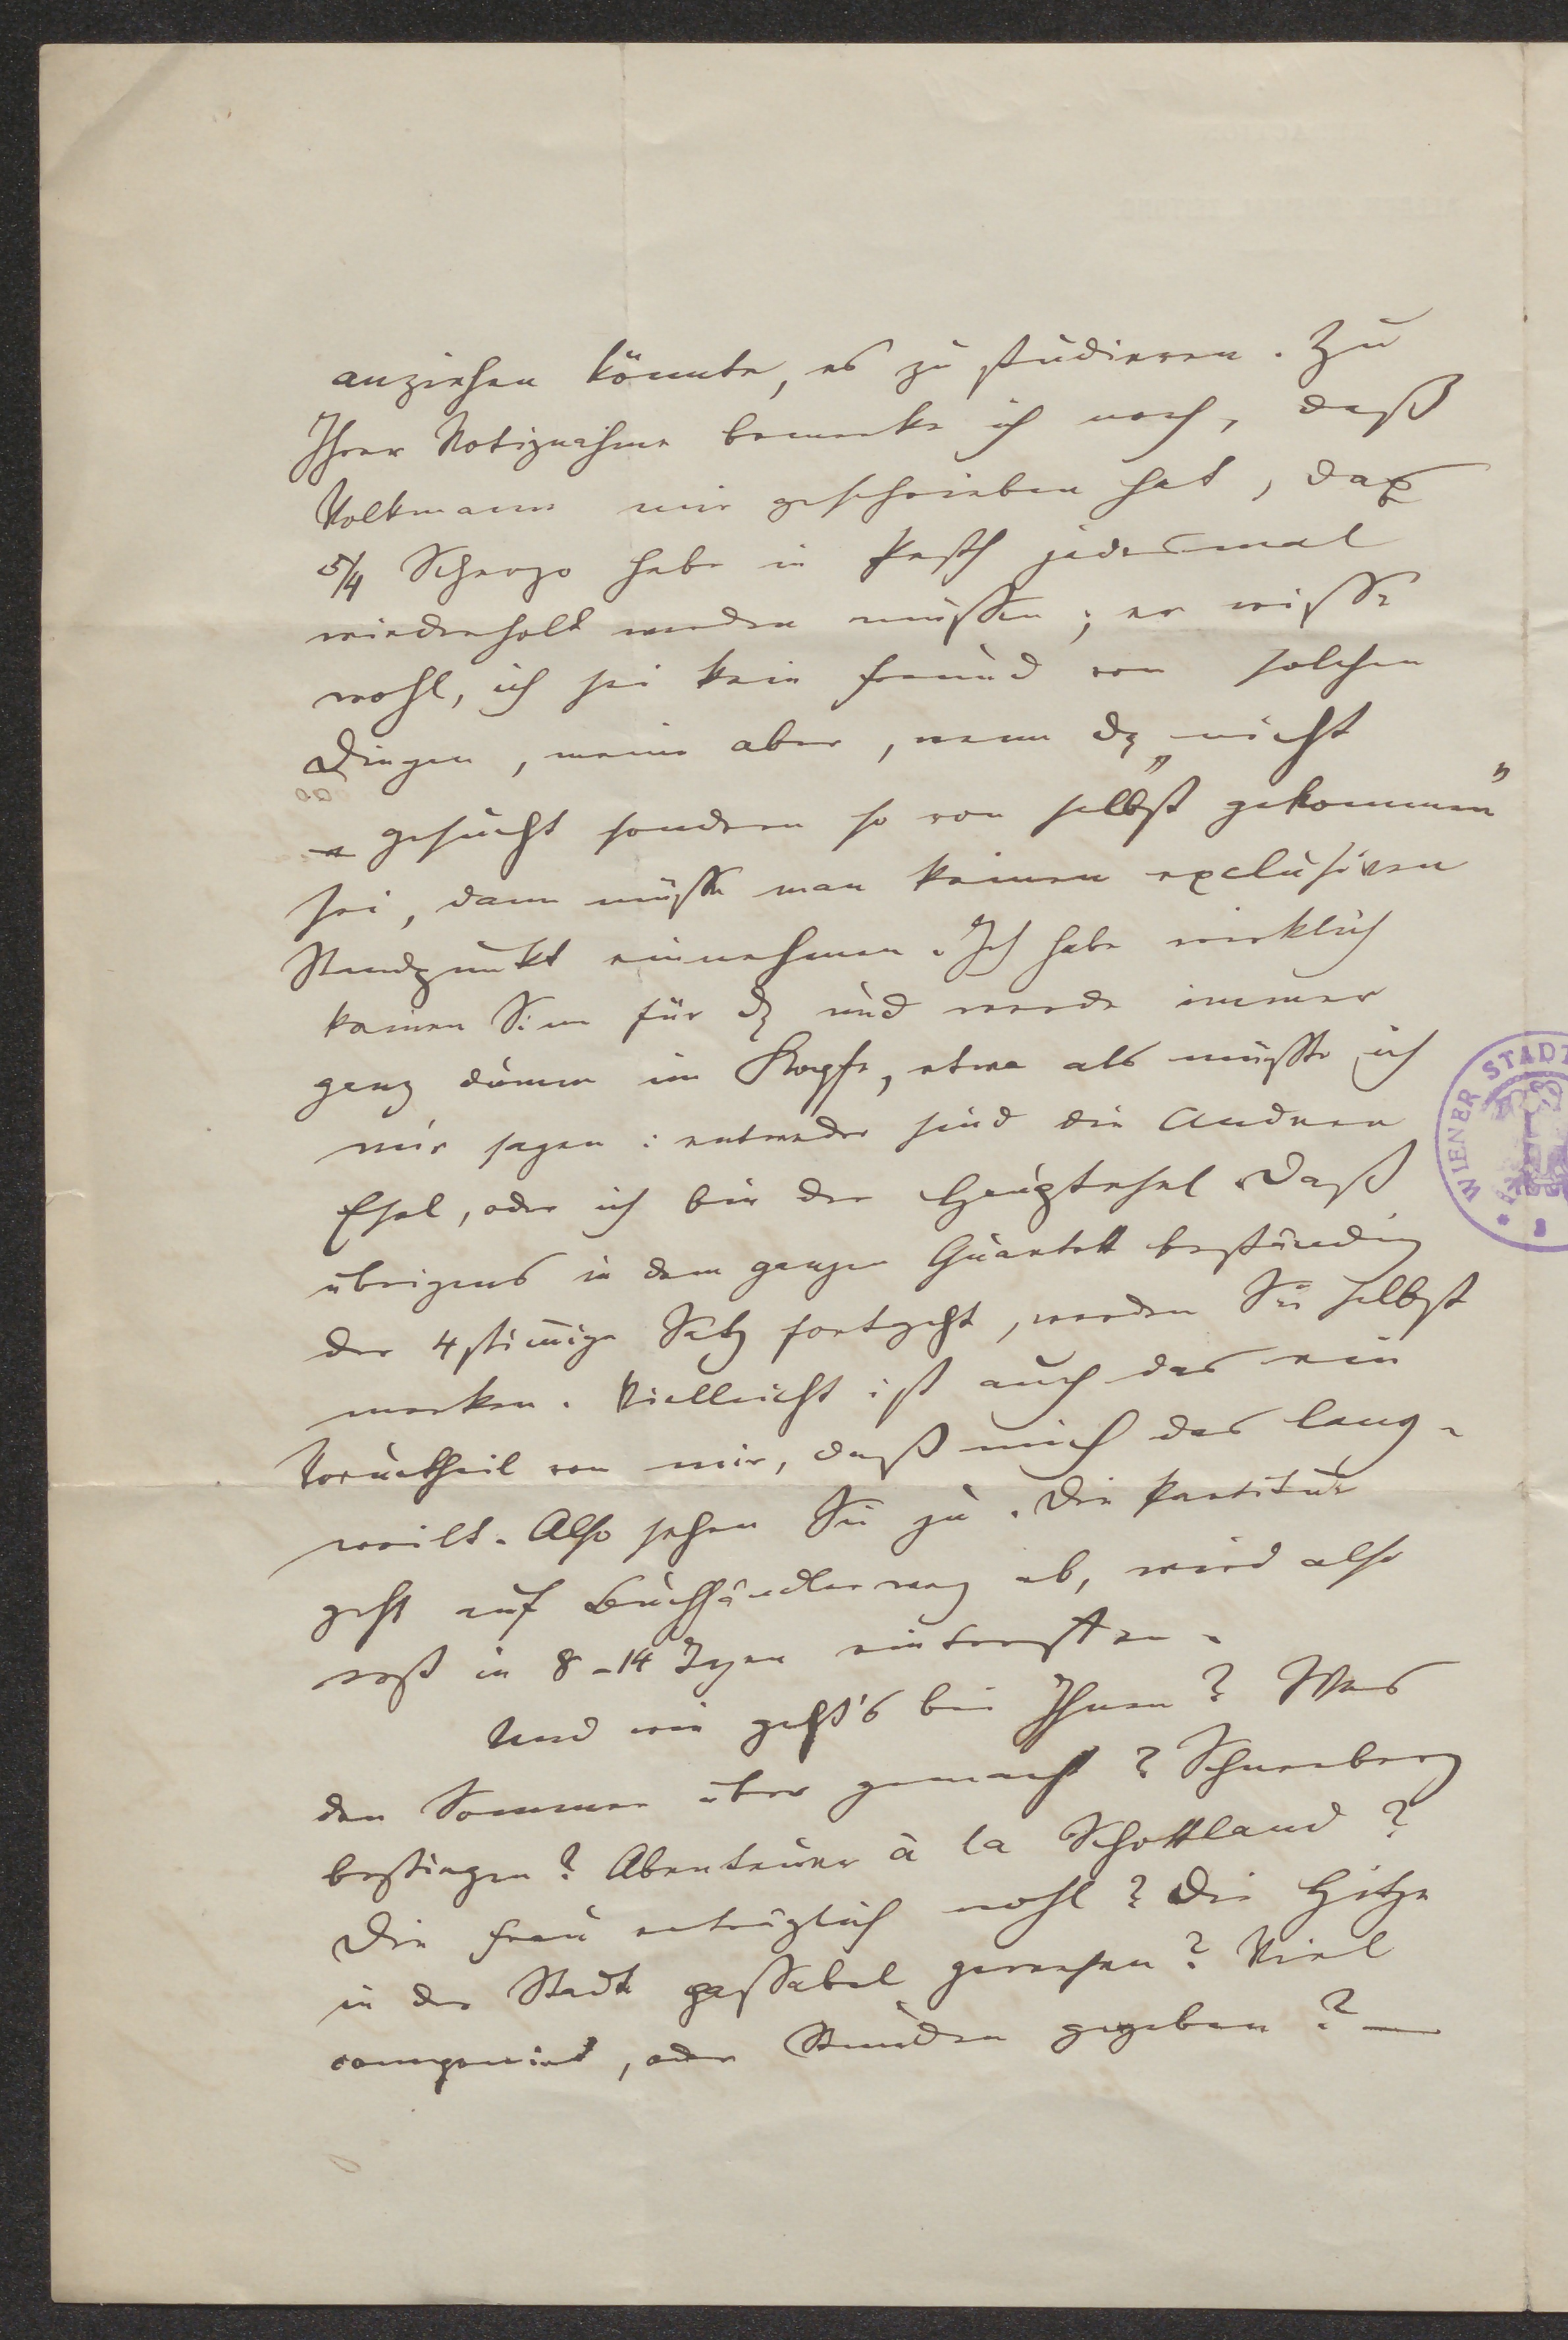 anziehen könnte, es zu studieren. Zu
Ihrer Notiznahme bemerke ich noch, daß
Volkmann mir geschrieben hat, das
5/4 Scherzo habe in Pesth jedesmal
wiederholt werden müssen; er wisse
wohl, ich sei kein Freund von solchen
Dingen, meine aber, wenn dς „nicht
gesucht sondern so von selbst gekommen"
sei, dann müsse man keinen exclusiven
Standpunkt einnehmen. Ich habe wirklich
keinen Sinn für dς und werde immer
ganz dumm im Kopfe, etwa als müsste ich
mir sagen: entweder sind die Anderen
Esel, oder ich bin der Hauptesel. Daß
übrigens in dem ganzen Quartett beständig
der 4stim̄ige Satz fortgeht, werden Sie selbst
merken. Vielleicht ist auch das ein
Vorurtheil von mir, daß mich das lang-
weilt. Also sehen Sie zu. Die Partitur
geht auf Buchhändlerweg ab, wird also
erst in 8-14 Tagen eintreffen.
Und wie geht's bei Ihnen? Was
den Sommer über gemacht? Schneeberg
bestiegen? Abenteuer à la Schottland?
Die Frau erträglich wohl? Die Hitze
in der Stadt passabel gewesen? Viel
componirt, oder Stunden gegeben? —
WIENER STADT